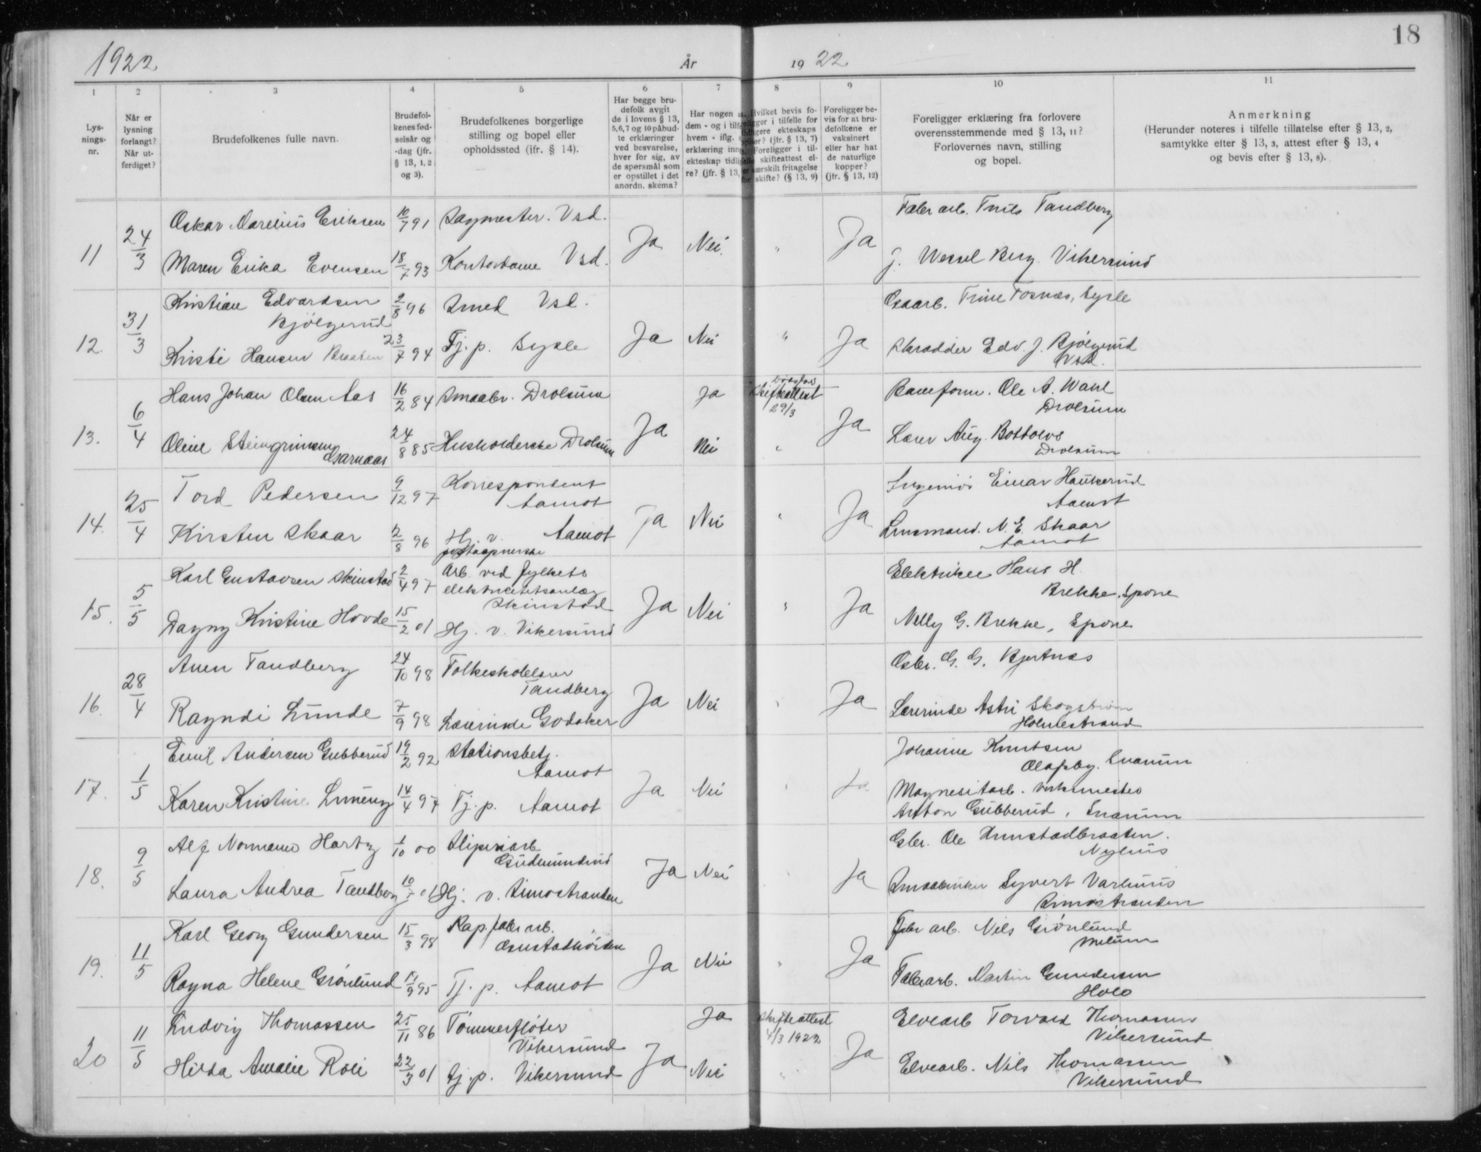 1922 År 1922 18
1 2 3 4 5 6 7 8 9 10 11
Lys-
nings-
nr.
Når er
lysning
forlangt?
Når ut-
ferdiget?
Brudefolkenes fulle navn.
Brudefol-
kenes fød-
selsår og
-dag (jfr.
§ 13, 1, 2
og 3).
Brudefolkenes borgerlige
stilling og bopel eller
opholdssted (jfr. § 14).
Har begge bru-
defolk avgit
de i lovens § 13,
5, 6, 7 og 10 påbud-
te erklæringer
ved besvarelse,
hver for sig, av
de spørsmål som
er opstillet i det
anordn. skema?
Har nogen
dem - og i tilf
hvem - iflg.
erklæring inn
ekteskap tidl
re? (jfr. § 13,
Hvilket bevis fo-
ligger i tilfelle for
tidligere ekteskaps
(jfr. § 13, 7)
Foreligger i til-
skifteattest el-
særskilt fritagelse
skifte? (§ 13, 9)
Foreligger be-
vis for at bru-
defolkene er
vaksinert
eller har hat
de naturlige
kopper?
(jfr. § 13, 12)
Foreligger erklæring fra forlovere
overensstemmende med § 13, 11?
Forlovernes navn, stilling
og bopel.
Anmerkning
(Herunder noteres i tilfelle tillatelse efter § 13, 2,
samtykke efter § 13, 3, attest efter § 13, 4
og bevis efter § 13, 8).
11 24/3 Oskar Marelius Eriksen 10/7 91 Sagmester. Vsd. Ja Nei " Ja Fabr arb. Tandberg
Maren Erika Evensen 18/7 93 Kontordame Vsd. J. Wessel Berg Vikersund
12 31/3 Kristian Edvardsen
Bjølgerud 2/8 96 Smed Vsd. Ja Nei " Ja Fosnæs, Sysle
Kristi Hansen Braaten 23/7 94 Tj. p. Sysle Skrædder Edv J. Bjølgerud
Vsd.
13. 6/4 Hans Johan Olsen Aas 16/2 84 Smaabr. Drolsum Ja Ja Skifteattest
29/3 Ja Baneform. Ole A. Wahl
Drolsum
Oline Steingrimsen
Garnaas 24/8 85 Husholderske Drolsum Nei " Lærer Aug. Bottolvs
Drolsum
14. 25/4 Tord Pedersen 9/12 97 Korrespondent
Aamot Ja Nei " Ja Ingeniør Einar Haukerud
Aamot
Kirsten Skaar 2/8 96 Hj. v. Aamot Lensmand N. E. Skaar
Aamot
15. 5/5 Karl Gustavsen Skinstad 2/4 97 Arb. ved fylkets
elektricitetsanlæg
Skinstad Ja Nei " Ja Elektriker Hans H.
Brekke, Spone
Dagny Kristine Hovde 15/2 01 Hj. v. Vikersund Nelly G. Brekke, Spone
16. 28/4 Anen Tandberg 24/10 98 Folkeskolelærer
Tandberg Ja Nei " Ja Gbr. G. G. Bjertnæs
Ragndi Lunde 7/9 98 Lærerinde Godaker Lærerinde Astri Skogstrøm
Holmestrand
17. 1/5 Emil Andersen Gubberud 19/2 92 Stationsbetj.
Aamot Ja Nei Ja Johanne Knutsen
Olafsby. Snarum
Karen Kristine 14/4 97 Tj. p. Aamot Magnesitarb. Virksmester
Anton Gubberud, Snarum
18. 9/5 Alf Normann Hartvig 1/10 00 Sliperiarb
Gudmundrud Ja Nei Ja Gbr. Ole Kunstadbraaten.
Nyhus
Laura Andrea Tandberg Hj. v. Simostranden Smaabruker Syvert Varhuus
Simostranden
19. 11/5 Karl Georg Gundersen 15/3 98 Papfabr. arb. Ja Nei " Ja Fabr arb. Nils Grønlund
Melum
Ragna Helene Grønlund Tj. p. Aamot Fabr. arb. Martin Gundersen
Holo
20 11/5 Ludvig Thomassen 25/11 86 Tømmerfløter
Vikersund Ja Ja Skifteattest
4/3 1922 Ja Elvearb Torvald Thomassen
Vikersund
Hilda Amalie Roli 22/3 01 Tj. p. Vikersund Nei Elvearb. Nils Thomassen
Vikersund